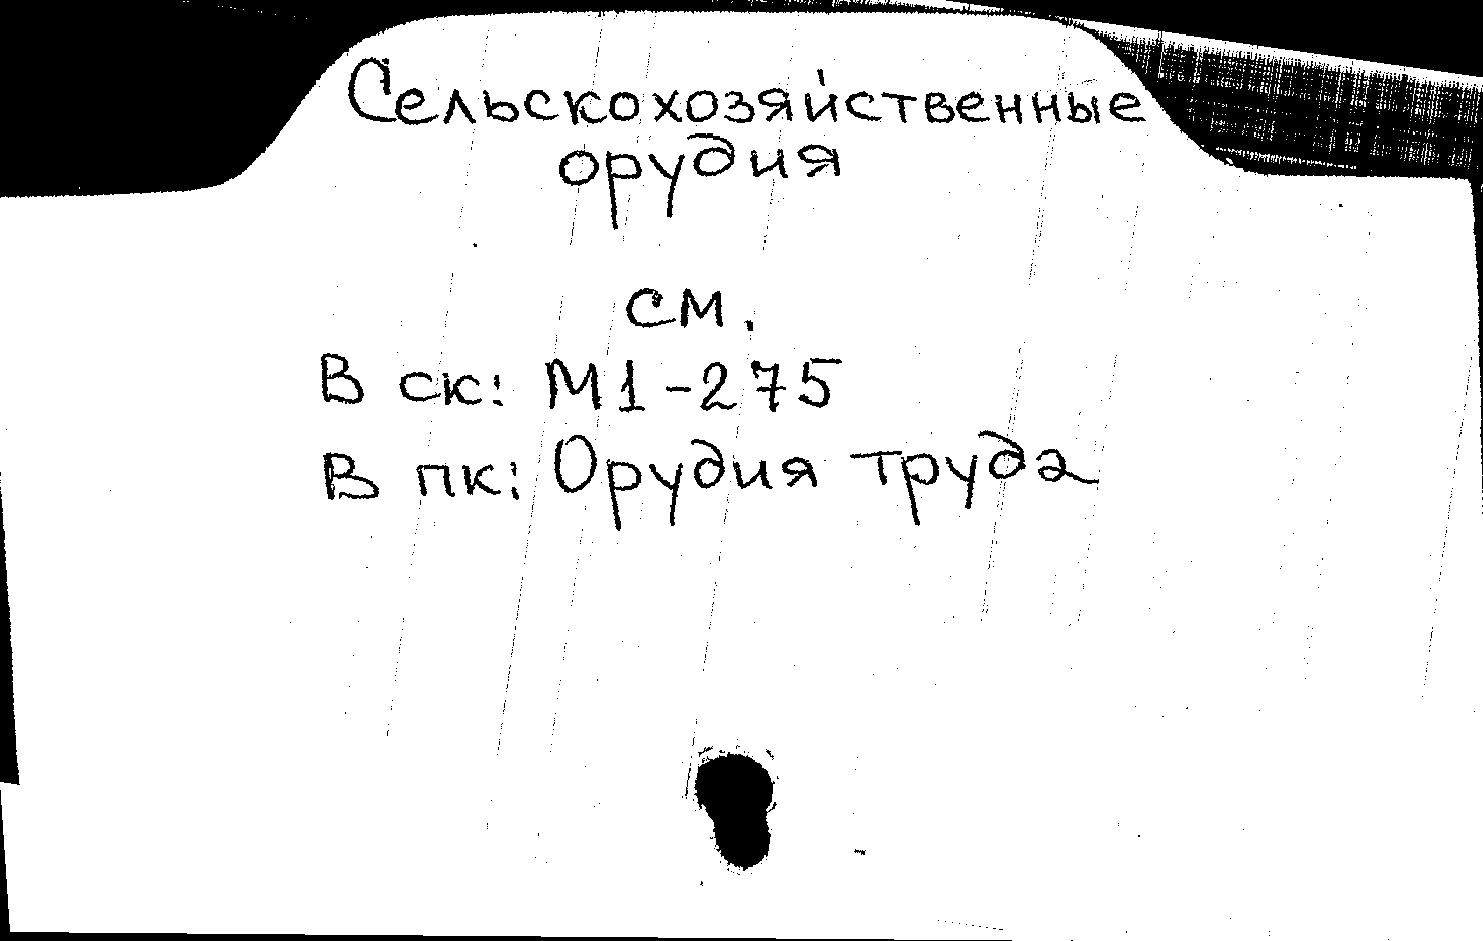 Сельскохозяйственные
орудия
см.
В ск: М1-275
В пк: Орудия труда